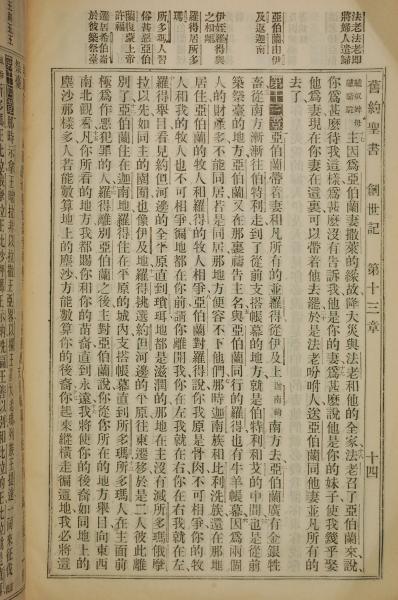 舊約聖書 創世記 第十三章 十四
法老法老卽
將婦人還歸
亞伯蘭由伊
及返迦南
伊姪羅得與
之相離
羅得居所多
瑪
所多瑪人習
俗甚惡亞伯
蘭復蒙上帝
許福
遷居希伯崙
於彼築祭臺
主因爲亞伯蘭妻撒萊的緣故降大災與法老和他的全家法老召了亞伯蘭來說
你爲甚麽這樣待我爲甚麽沒有告訴我他是你的妻爲甚麽說他是你的妹子使我幾乎娶
他爲妻現在你妻在這裏可以帶着他去罷於是法老吩咐人送亞伯蘭同他妻並凡所有的
去了
第十三章亞伯蘭帶着妻和凡所有的並羅得從伊及上迦南南方去亞伯蘭廣有金銀牲
畜從南方漸漸往伯特利走到了從前支搭帳幕的地方就是伯特利和艾的中間也是從前
築祭臺的地方亞伯蘭又在那裏禱告主名與亞伯蘭同行的羅得也有牛羊帳幕因爲兩個
人的財產多不能同居若是同居那地方便容不下他們那時迦南族和比利洗族還在那地
居住亞伯蘭的牧人和羅得的牧人相爭亞伯蘭對羅得說你我原是骨肉不可相爭你的牧
人和我的牧人也不可相爭徧地都在你前請你離開我你在左我就在右你在右我就在左
羅得舉目看見約但河邊的全平原直到瑣珥地都是滋潤的那地在主沒有滅所多瑪俄摩
拉以先如同主的園囿也像伊及地羅得挑選約但河邊的平原往東遷移於是二人彼此離
別了亞伯蘭住在迦南地羅得住在平原的城內支搭帳幕直到所多瑪所多瑪人在主面前
極爲作惡犯罪的人羅得離別亞伯蘭之後主對亞伯蘭說你從你所在的地方舉目向東西
南北觀看凡你所看的地方我都賜你和你的苗裔直到永遠我將使你的後裔如同地上的
塵沙那樣多人若能數算地上的塵沙方能數算你的後裔你起來縱橫走徧這地我必將這